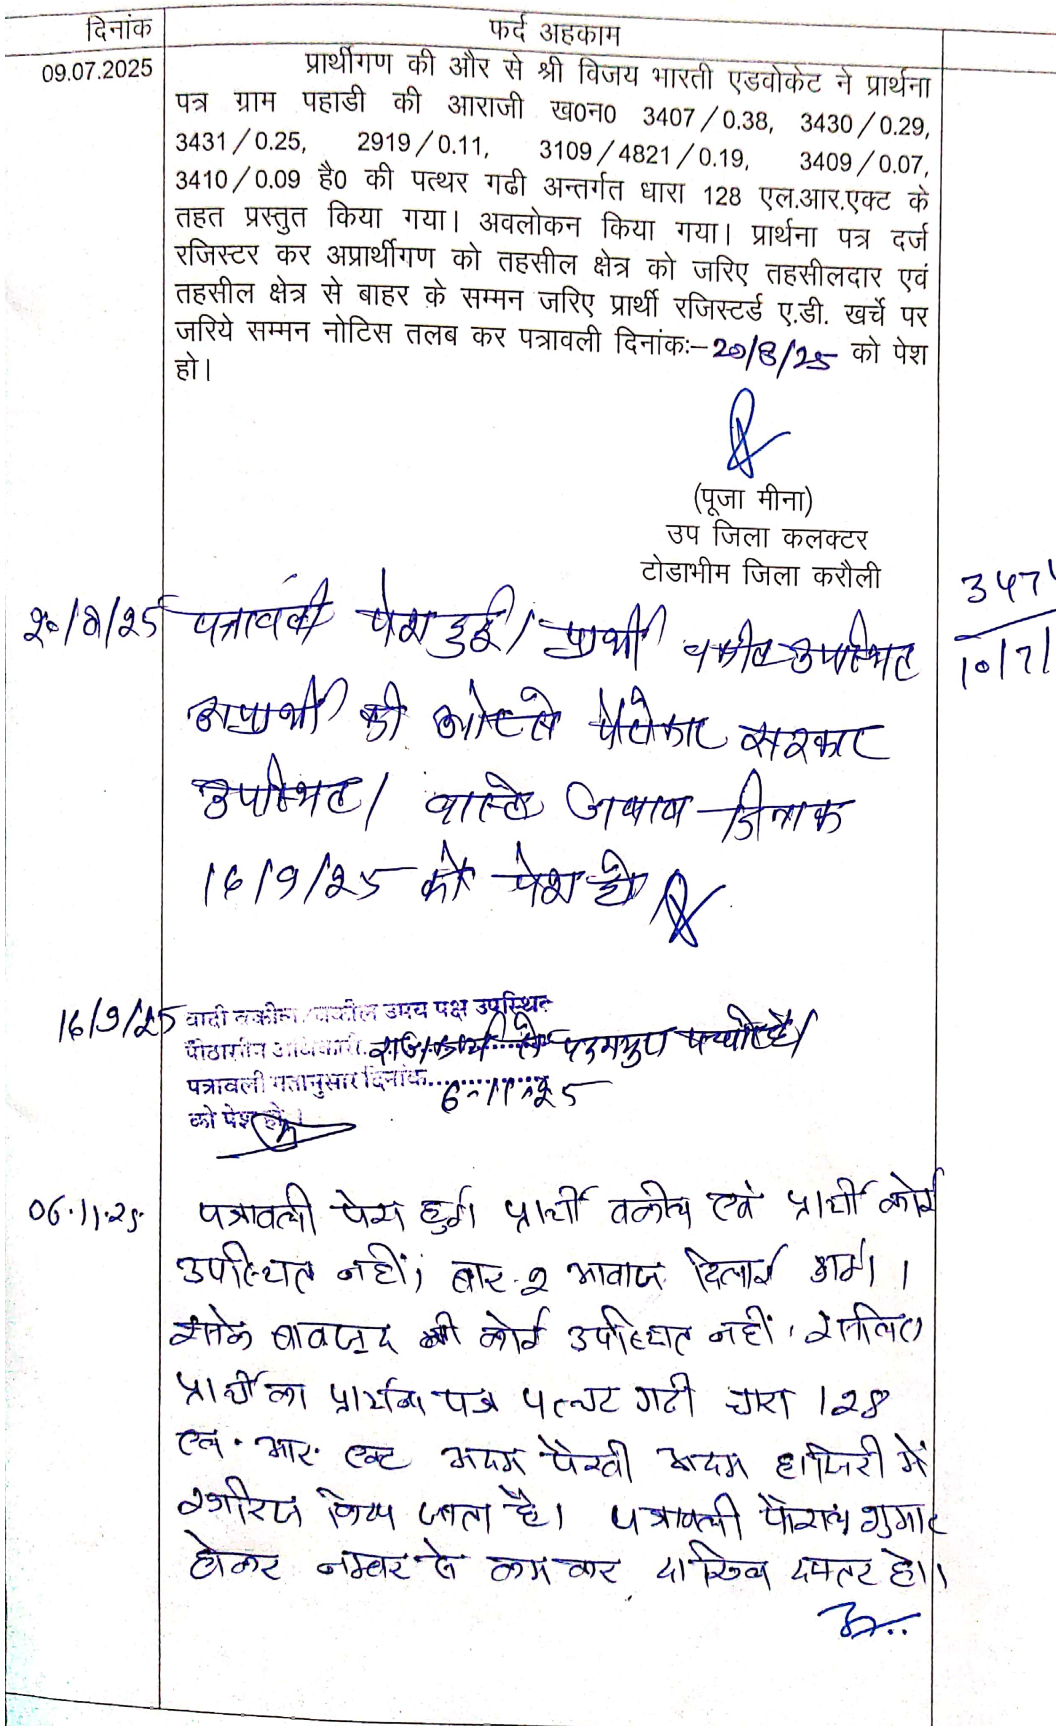 दिनांक
फर्द अहकाम
09.07.2025
प्रार्थीगण की और से श्री विजय भारती एडवोकेट ने प्रार्थना
पत्र ग्राम पहाडी की आराजी ख0न0 3407/0.38, 3430/0.29,
3431/0.25, 2919/0.11, 3109/4821/0.19, 3409/0.07,
3410/0.09 है0 की पत्थर गढी अन्तर्गत धारा 128 एल.आर.एक्ट के
तहत प्रस्तुत किया गया। अवलोकन किया गया। प्रार्थना पत्र दर्ज
रजिस्टर कर अप्रार्थीगण को तहसील क्षेत्र को जरिए तहसीलदार एवं
तहसील क्षेत्र से बाहर के सम्मन जरिए प्रार्थी रजिस्टर्ड ए.डी. खर्चे पर
जरिये सम्मन नोटिस तलब कर पत्रावली दिनांकः-20/8/25 को पेश
हो।
(पूजा मीना)
उप जिला कलक्टर
टोडाभीम जिला करौली
347
10/7/
20/8/25 पत्रावली पेश हुई। प्रार्थी वकील उपस्थित
अप्रार्थी की ओर से पैरोकार सरकार
उपस्थित। वास्ते जवाब दिनांक
16/9/25 को पेश हो
16/9/25 वादी वकील/वकील उभय पक्ष उपस्थित
पीठासीन अधिकारी
पत्रावली गतानुसार दिनांक............
6-11-25
को पेश हो।
06.11.25 पत्रावली पेश हुई। प्रार्थी वकील एवं प्रार्थी कोई
उपस्थित नहीं, बार-2 आवाज दिलाई गई।
इसके बावजूद भी कोई उपस्थित नहीं, इसलिए
प्रार्थी का प्रार्थना पत्र पत्थर गढी धारा 128
एल. आर. एक्ट अदम पैरवी अदम हाजिरी में
खारिज किया जाता है। पत्रावली फैसल शुमार
होकर नम्बर से कम कर दाखिल दफ्तर हो।